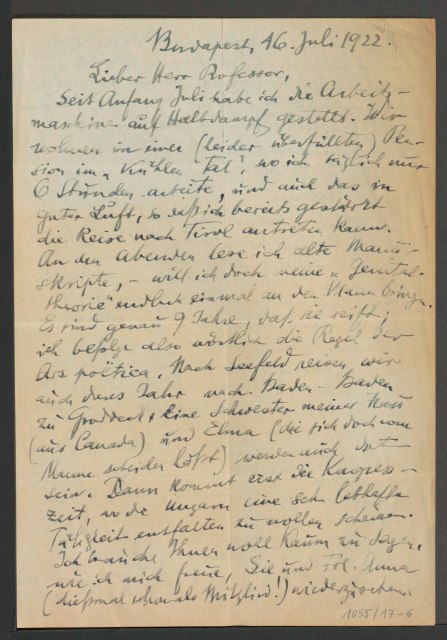 Budapest, 16. Juli 1922.
Lieber Herr Professor,
Seit Anfang Juli habe ich die Arbeits-
maschine auf Halbdampf gestellt. Wir
wohnen in einer (leider überfüllten) Pen-
sion im „Kühlen Tal", wo ich täglich nur
6 Stunden arbeite, und auch das in
guter Luft, so daß ich bereits gestärkt
die Reise nach Tirol antreten kann.
An den Abenden lese ich alte Manu-
skripte, – will ich doch meine „Genital-
theorie" endlich einmal an den Mann bringen.
Es sind genau 9 Jahre, daß sie reift;
ich befolge also wörtlich die Regel der
Ars poëtica. Nach Seefeld reisen wir
auch dieses Jahr nach Baden-Baden
zu Groddeck; eine Schwester meiner Frau
(aus Canada) und Elma (die sich doch vom
Manne scheiden läßt) werden auch dort
sein. Dann kommt erst die Kongreß-
zeit, wo die Ungarn eine sehr lebhafte
Tätigkeit entfalten zu wollen scheinen.
Ich brauche Ihnen wohl kaum zu sagen,
wie ich mich freue, Sie und Frl. Anna
(diesmal schon als Mitglied!) wiederzusehen.
1055/17-6